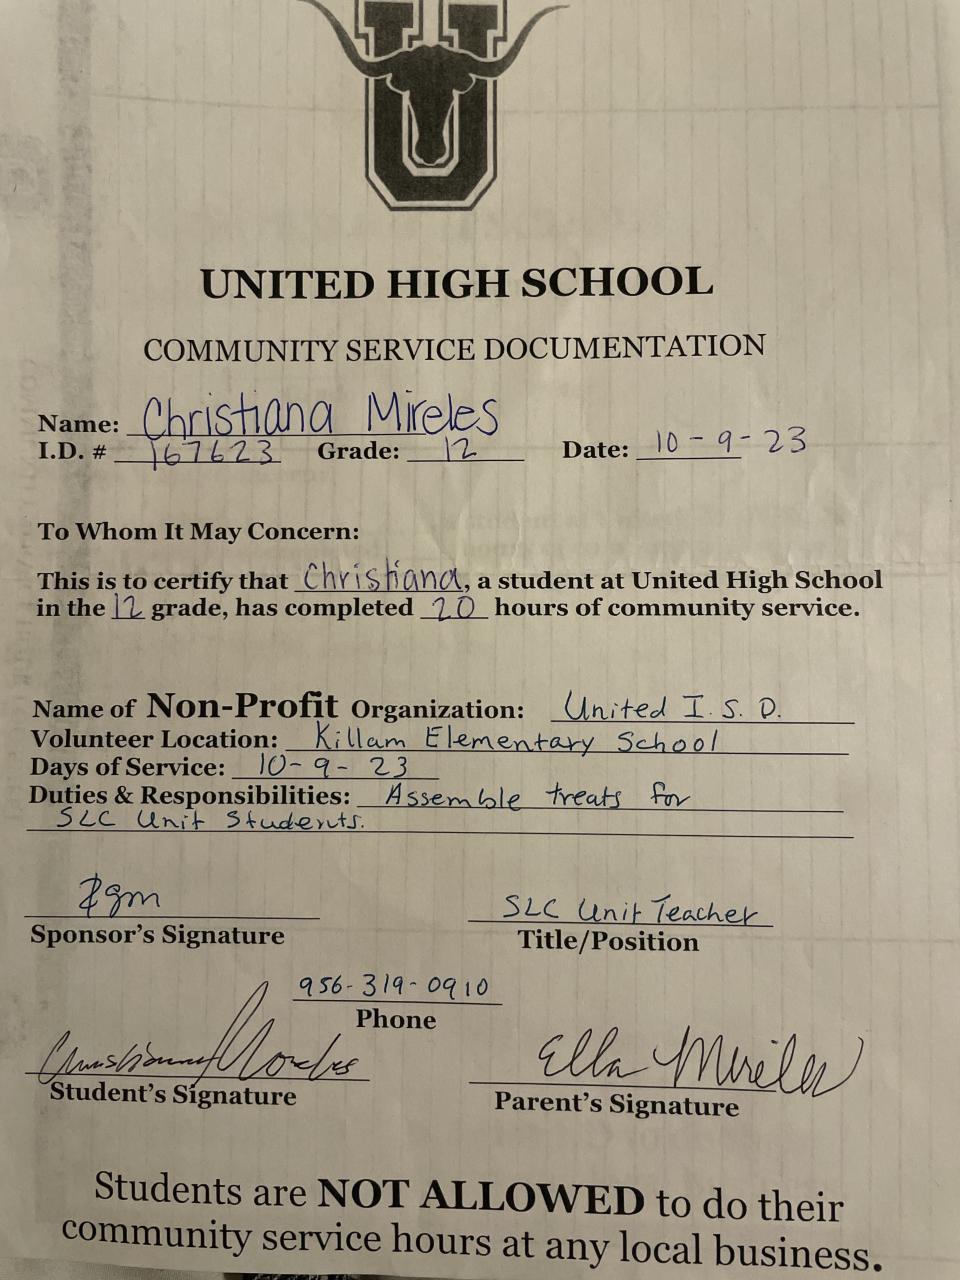 U
UNITED HIGH SCHOOL
COMMUNITY SERVICE DOCUMENTATION
Name: Christiana Mireles
I.D. # 167623 Grade: 12 Date: 10-9-23
To Whom It May Concern:
This is to certify that Christiana, a student at United High School
in the 12 grade, has completed 20 hours of community service.
Name of Non-Profit Organization: United I.S.D.
Volunteer Location: Killam Elementary School
Days of Service: 10-9-23
Duties & Responsibilities: Assemble treats for
SLC Unit Students.
SLC Unit Teacher
Sponsor's Signature Title/Position
956-319-0910
Phone
Christiana Mireles Ella Mireles
Student's Signature Parent's Signature
Students are NOT ALLOWED to do their
community service hours at any local business.